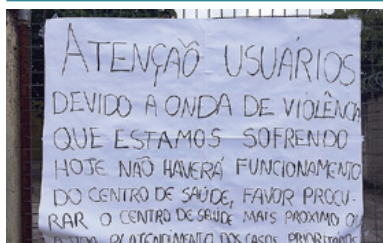 ATENÇAÕ USUÁRIOS
DEVIDO A ONDA DE VIOLÊNCIA
QUE ESTAMOS SOFRENDO
HOJE NÃO HAVERÁ FUNCIONAMENTO
DO CENTRO DE SAÚDE, FAVOR PROCU-
RAR O CENTRO DE SAUDE MAIS PROXIMO OU
P/ ATENDIMENTO DOS CASOS PRIORITÁRIOS